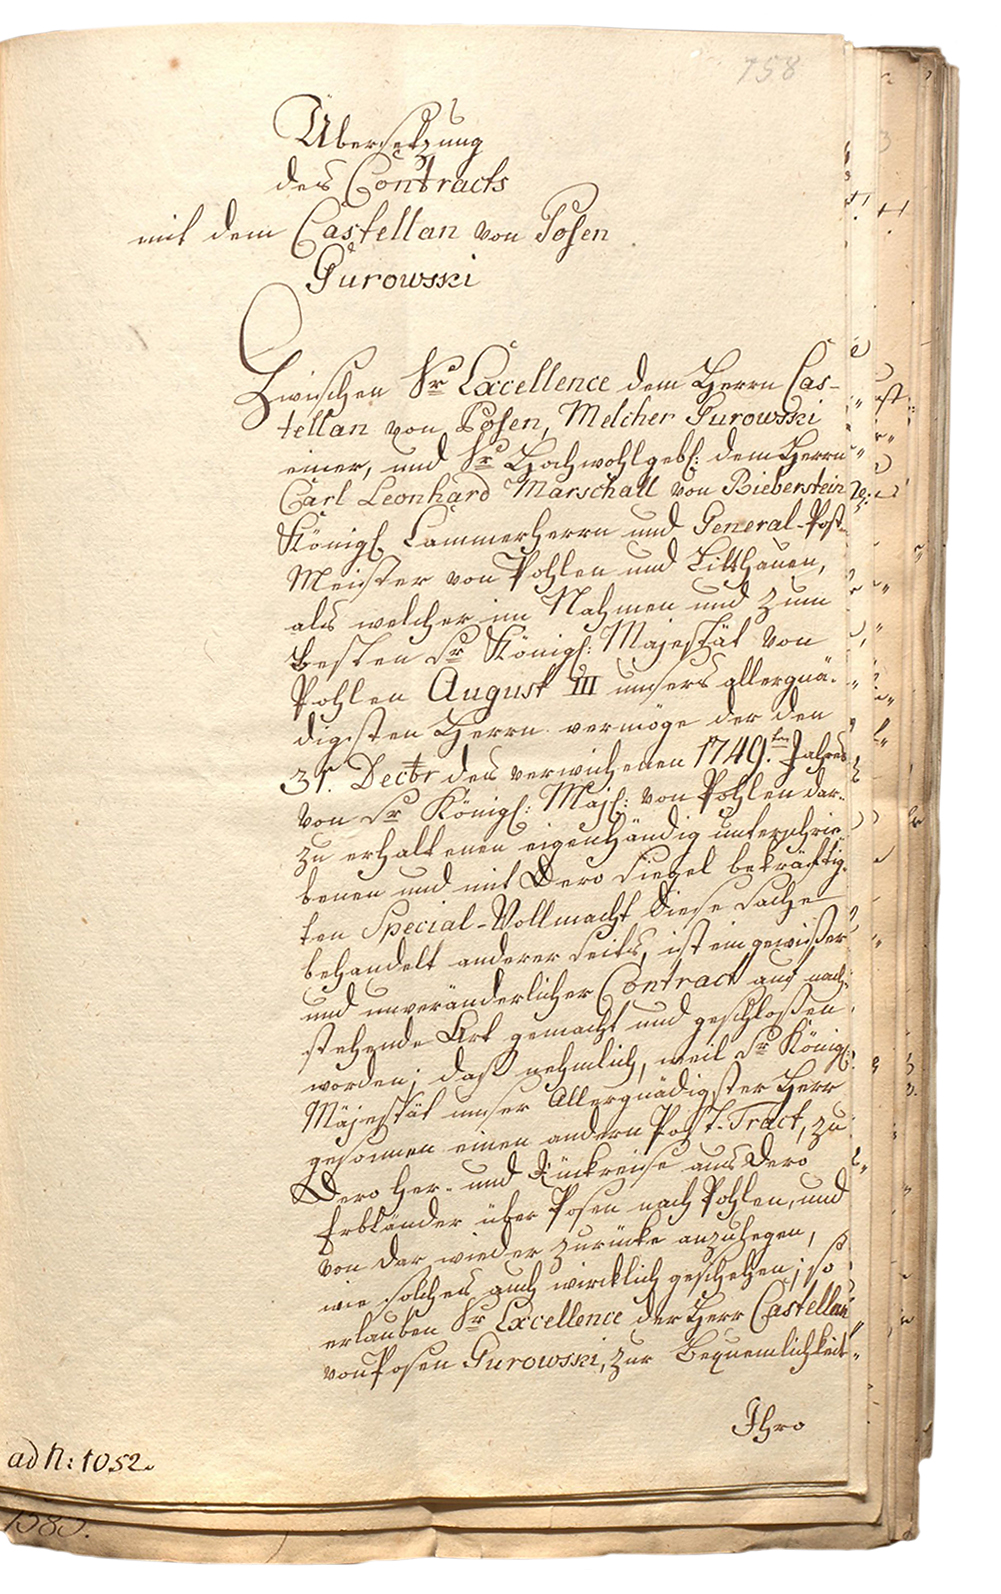 758
Übersetzung
des Contracts
mit dem Castellan von Posen
Gurowski
Zwischen Sr Excellence dem Herrn Cas-
tellan von Posen, Melcher Gurowski
einer, und Sr Hochwohlgeb: dem Herrn
Carl Leonhard Marschall von Bieberstein
Königl. Cammerherrn und General-Post-
Meister von Pohlen und Litthauen,
als welcher im Nahmen und zum
Besten Sr Königl: Majestät von
Pohlen August III unsers allergnä-
digsten Herrn vermöge der den
31. Decbr des verwichenen 1749.ten Jahres
von Sr Königl: Maj: von Pohlen dar-
zu erhaltenen eigenhändig unterschrie-
benen und mit Dero Siegel bekräftig-
ten Special-Vollmacht diese Sache
behandelt anderer Seits, ist ein gewißer
und unveränderlicher Contract auf nach-
stehende Art gemacht und geschloßen
worden; daß nehmlich, weil Sr Königl:
Majestät unser Allergnädigster Herr
gesonnen einen andern Post-Tract, zu
Dero Her- und Rückreise aus Dero
Erbländer über Posen nach Pohlen, und
von dar wieder zurücke anzulegen,
wie solches auch wircklich geschehen; so
erlauben Sr Excellence der Herr Castellan
von Posen Gurowski, zur Bequemlichkeit
Ihro
ad N: 1052.
1585.